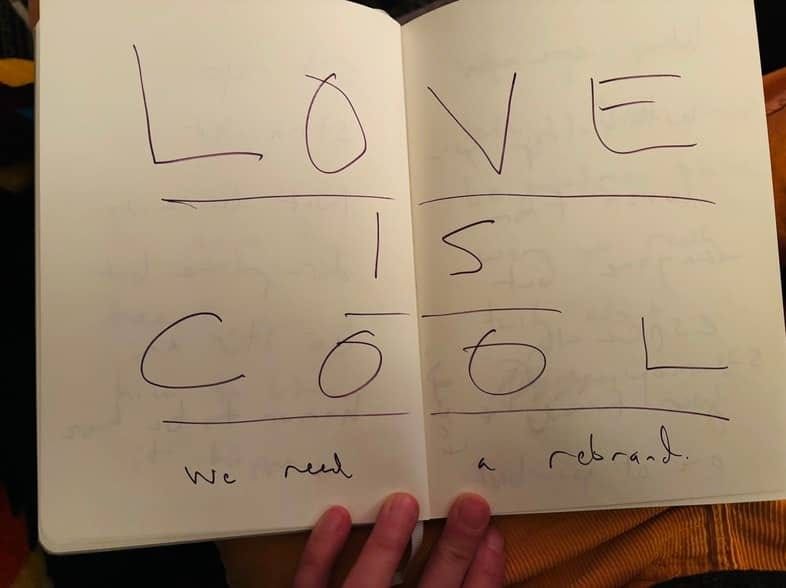 LOVE
IS
COOL
We need a rebrand.